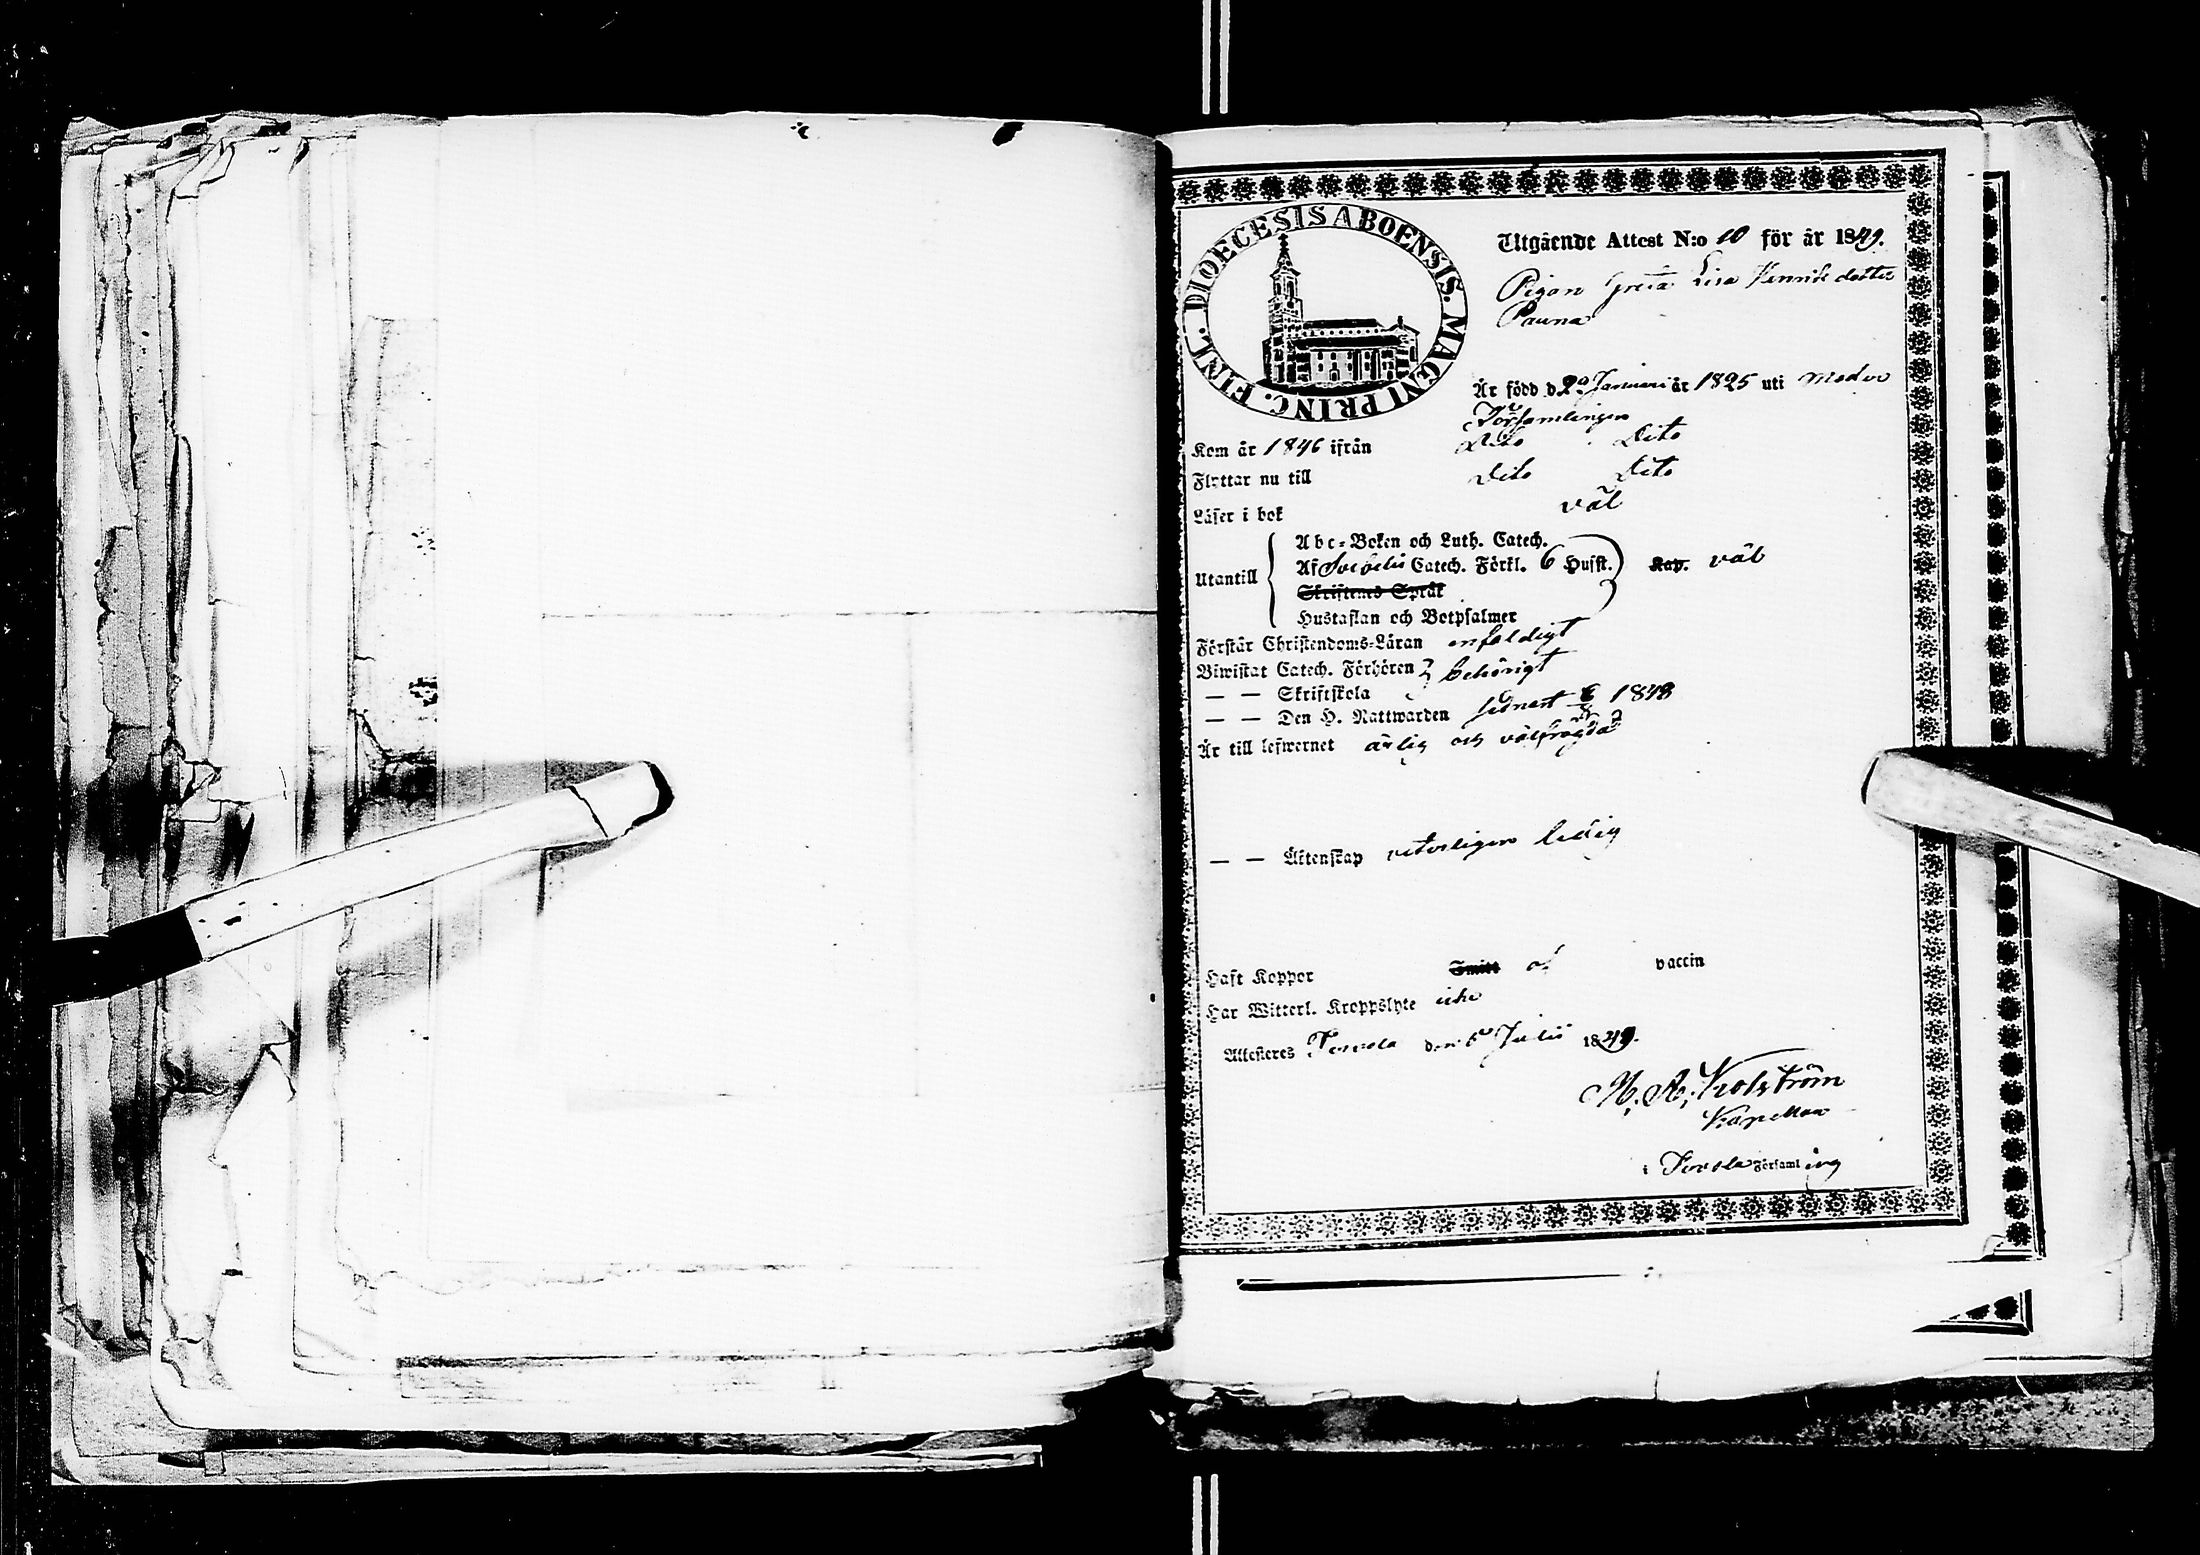 DIOECESIS ABOENSIS. MAGNI PRINC. FINL.
Utgående Attest N:o 10 för år 1849.
Pigan Greta Lisa Henriksdotter
Pauna
Är född d. 2 Januari år 1825 uti Moder
Församlingen
Kom år 1846 ifrån Dito Dito
Flyttar nu till Dito Dito
Läser i bok väl
Utantill
Abc-Boken och Luth. Catech.
Af Svebelii Catech. Förkl. 6 Hufst. Kap. väl
Skriftenes Språk
Hustaflan och Botpsalmer
Förstår Christendoms-Läran enfaldigt
Biwistat Catech. Förhören behörigt
— — Skriftskola
— — Den H. Nattwarden senast 1848
Är till lefwernet ärlig och välfrägdad
— — Äktenskap veterligen ledig
Haft Koppor Smitt af vaccin
Har Witterl. Kroppslyte icke
Attesteres Tervola den 6 Julii 1849.
Kapellan
i Tervola Församling